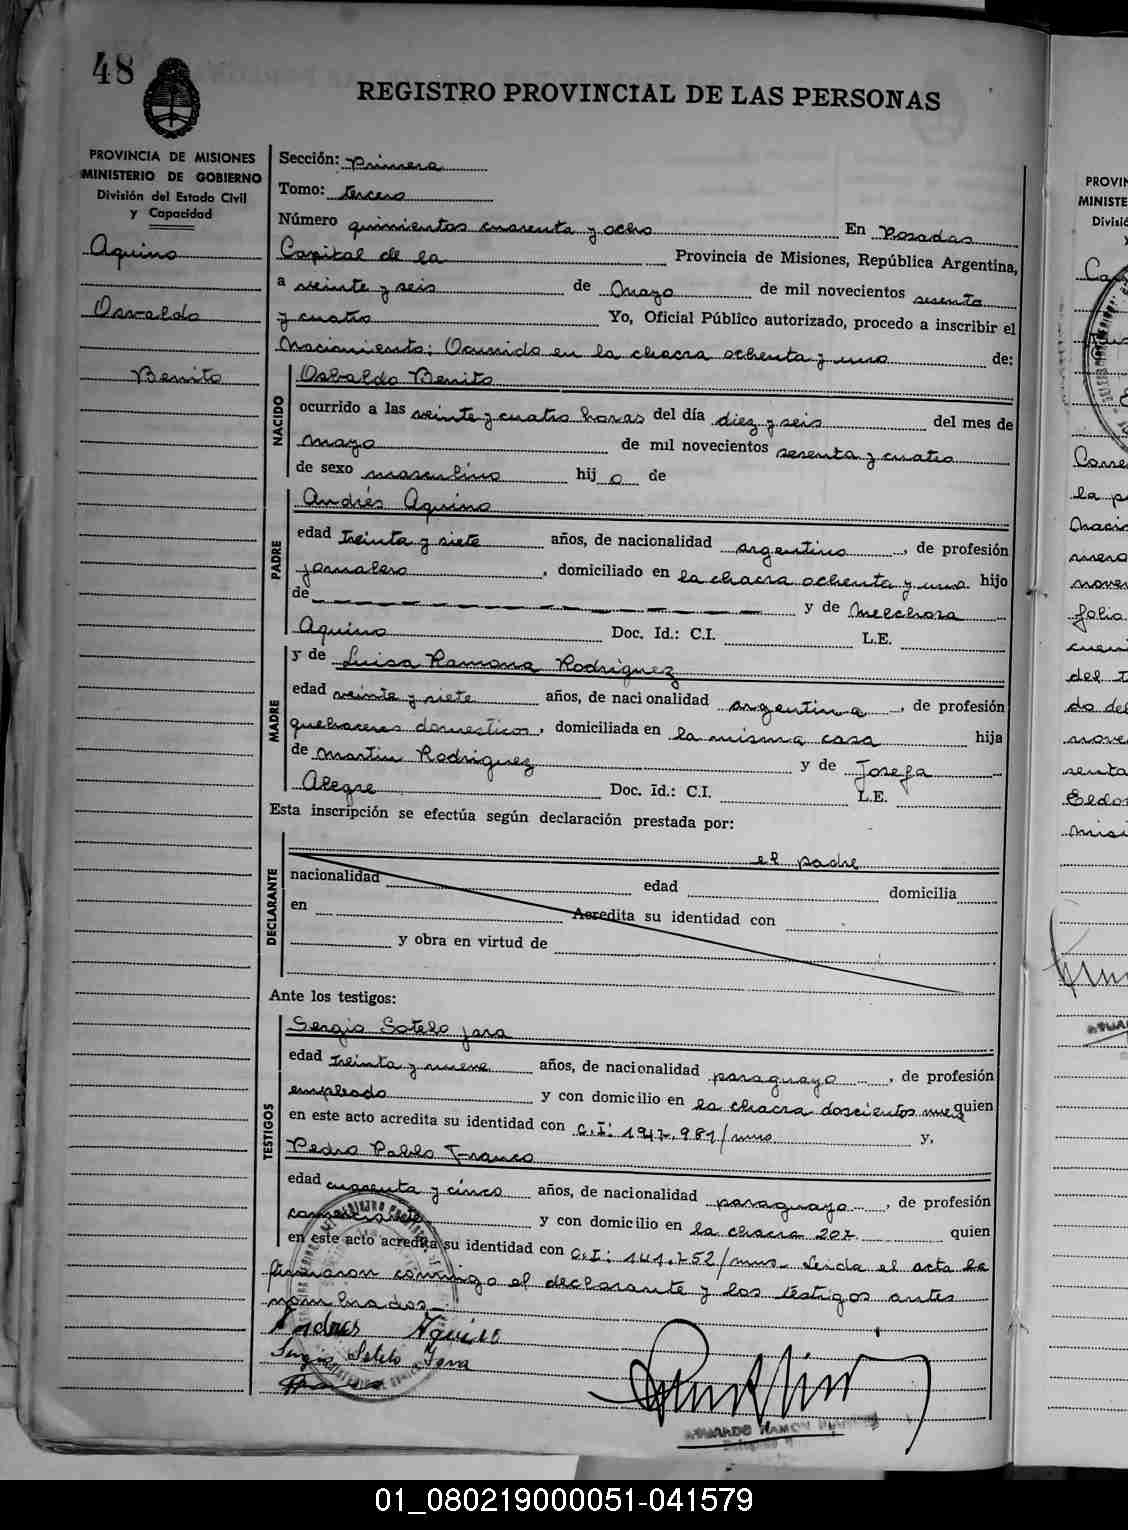 48
REGISTRO PROVINCIAL DE LAS PERSONAS
PROVINCIA DE MISIONES
MINISTERIO DE GOBIERNO
División del Estado Civil
y Capacidad
Aquino
Osvaldo
Benito
Sección: Primera
Tomo: tercero
Número quinientos cuarenta y ocho En Posadas
Capital de la Provincia de Misiones, República Argentina,
a veinte y seis de Mayo de mil novecientos sesenta
y cuatro Yo, Oficial Público autorizado, procedo a inscribir el
Nacimiento: Ocurrido en la chacra ochenta y uno de:
NACIDO
Osbaldo Benito
ocurrido a las veinte y cuatro horas del día diez y seis del mes de
Mayo de mil novecientos sesenta y cuatro
de sexo masculino hijo de
PADRE
Andrés Aquino
edad treinta y siete años, de nacionalidad argentino, de profesión
jornalero, domiciliado en la chacra ochenta y uno hijo
de y de Melchora
Aquino Doc. Id.: C.I. L.E.
MADRE
y de Luisa Ramona Rodriguez
edad veinte y siete años, de nacionalidad argentina, de profesión
quehaceres domesticos, domiciliada en la misma casa hija
de Martin Rodriguez y de Josefa
Alegre Doc. Id.: C.I. L.E.
Esta inscripción se efectúa según declaración prestada por:
DECLARANTE
el padre
nacionalidad edad domicilia
en Acredita su identidad con
y obra en virtud de
Ante los testigos:
TESTIGOS
Sergio Sotelo Jara
edad treinta y nueve años, de nacionalidad paraguayo, de profesión
empleado y con domicilio en la chacra doscientos nueve quien
en este acto acredita su identidad con C.I: 147.981/mns y,
Pedro Pablo Franco
edad cuarenta y cinco años, de nacionalidad paraguayo, de profesión
comerciante y con domicilio en la chacra 207. quien
en este acto acredita su identidad con C.I: 141.752/mns- Leida el acta la
firmaron conmigo el declarante y los testigos antes
nombrados-
Andres Aquino
Sergio Sotelo Jara
01_080219000051-041579